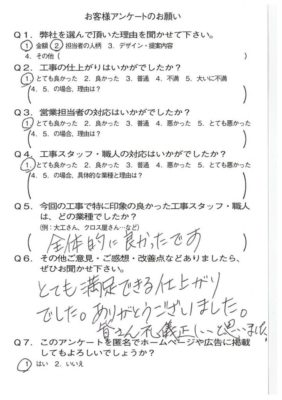 お客様アンケートのお願い
Q1. 弊社を選んで頂いた理由を聞かせて下さい。
① 金額 ② 担当者の人柄 3. デザイン・提案内容
4. その他（ ）
Q2. 工事の仕上がりはいかがでしたか？
① とても良かった 2. 良かった 3. 普通 4. 不満 5. 大いに不満
4. 5. の場合、理由は？
（ ）
Q3. 営業担当者の対応はいかがでしたか？
① とても良かった 2. 良かった 3. 普通 4. 悪かった 5. とても悪かった
4. 5. の場合、理由は？
（ ）
Q4. 工事スタッフ・職人の対応はいかがでしたか？
① とても良かった 2. 良かった 3. 普通 4. 悪かった 5. とても悪かった
4. 5. の場合、具体的な業種と理由は？
（ ）
Q5. 今回の工事で特に印象の良かった工事スタッフ・職人
は、どの業種でしたか？
(例:大工さん、クロス屋さん…など)
（全体的に良かったです）
Q6. その他ご意見・ご感想・改善点などありましたら、
ぜひお聞かせ下さい。
とても満足できる仕上がり
でした。ありがとうございました。
皆さん礼儀正しいと思いました
Q7. このアンケートを匿名でホームページや広告に掲載
してもよろしいでしょうか？
① はい 2. いいえ